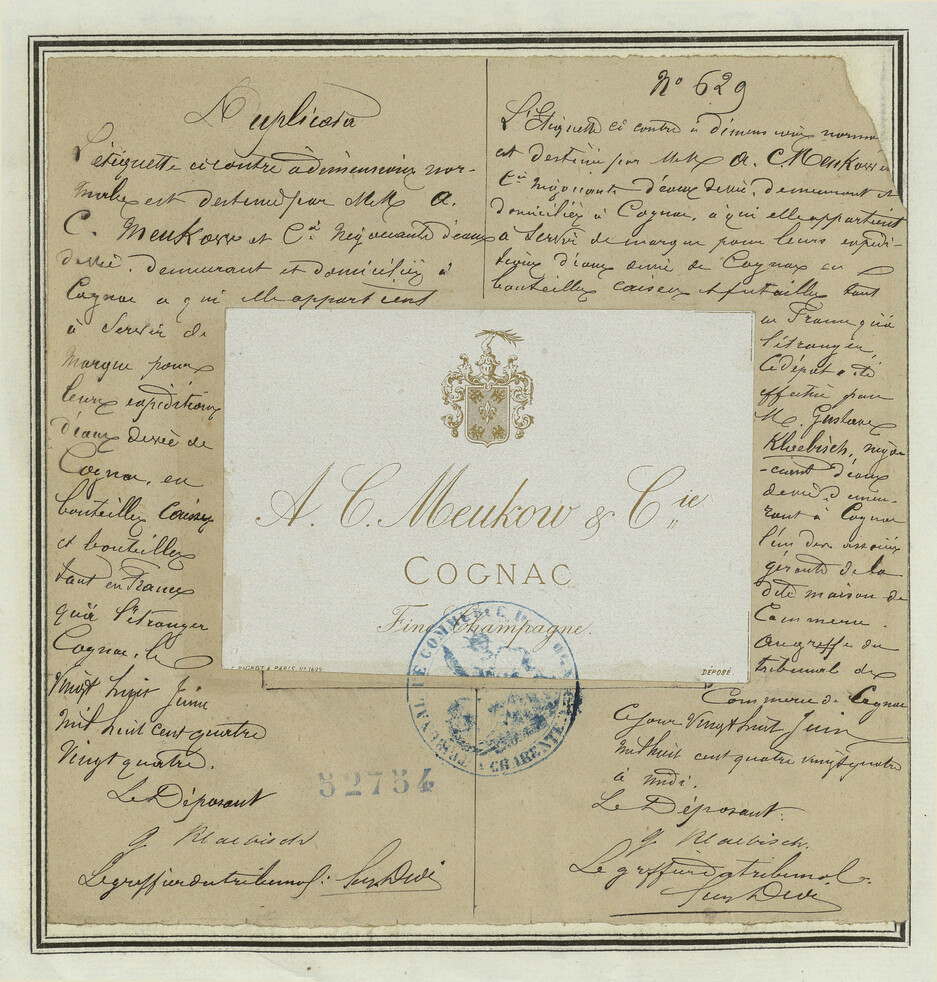 Duplicata
L'étiquette ci contre à dimensions nor-
males est destinée par MM A.
C. Meukow et Cie Négociants d'eaux
de vie, demeurant et domiciliés à
Cognac a qui elle appartient
à Servir de
marque pour
leurs expéditions
d'eaux de vie de
Cognac, en
bouteilles caisses
et bouteilles
tant en France
qu'à l'étranger
Cognac, le
Vingt huit Juin
mil huit cent quatre
Vingt quatre.
Le Déposant
G Klaebisch
Le greffier du tribunal:
No 629
L'Etiquette ci contre à dimensions norma
est destinée par MM A. C Meukow et
Cie Négociants d'eaux de vie, demeurant et
domiciliés à Cognac, à qui elle appartient
à Servir de marque pour leurs expédi-
tions d'eaux de vie de Cognac en
bouteilles caisses et futailles tant
en France qu'à
l'étranger,
Ce dépôt a été
effectué par
M. Gustave
Klaebisch, négo-
-ciant d'eaux
de vie demeu-
rant à Cognac
l'un des associés
gérants de la
dite maison de
Commerce.
au greffe du
tribunal de
Commerce de Cognac
Ce jour Vingt huit Juin
mil huit cent quatre vingt quatre
à midi.
Le Déposant.
G Klaebisch.
Le greffier du tribunal.
A. C. Meukow & Cie
COGNAC
Fine Champagne.
DÉPOSÉ.
TRIBUNAL DE COMMERCE
CHARENTE
52754